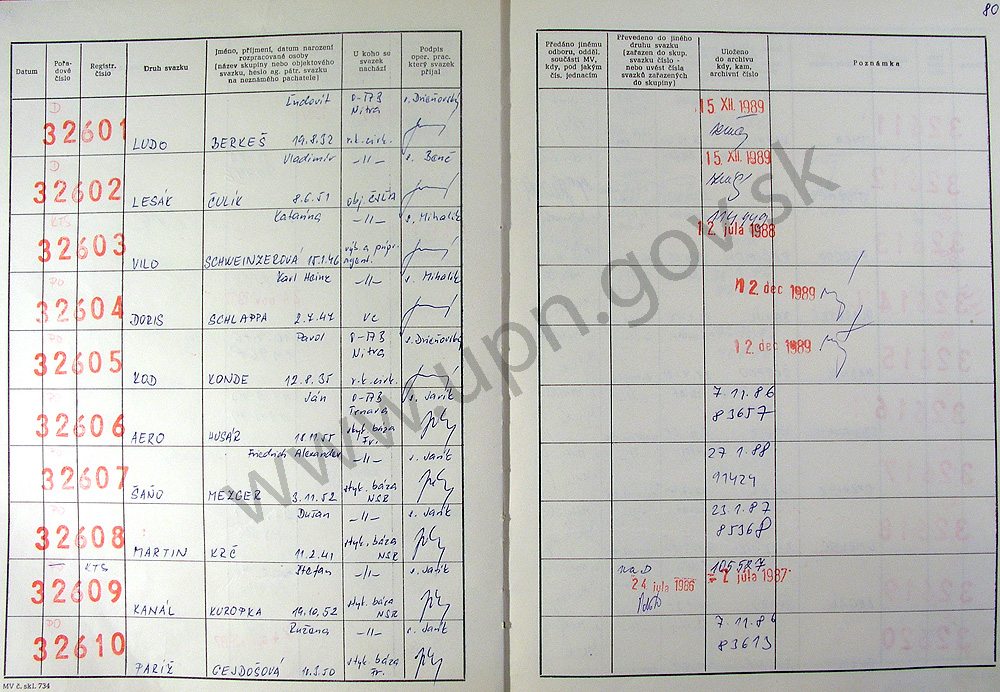 80
Datum
Pořa-
dové
číslo
Registr.
číslo
Druh svazku
Jméno, příjmení, datum narození
rozpracované osoby
(název skupiny nebo objektového
svazku, heslo ag. pátr. svazku
na neznámého pachatele)
U koho se
svazek
nachází
Podpis
oper. prac.
který svazek
přijal
Předáno jinému
odboru, odděl.
součásti MV,
kdy, pod jakým
čís. jednacím
Převedeno do jiného
druhu svazku
(zařazen do skup.
svazku číslo -
nebo uvést čísla
svazků zařazených
do skupiny)
Uloženo
do archivu
kdy, kam,
archivní číslo
Poznámka
D
32601
LUDO
Ľudovít
BERKEŠ 19.8.32
Nitra
r.k.cirk.
15 XII. 1989
D
32602
LESÁK
Vladimír
ČULÍK 8.6.51
-II-
15 XII. 1989
KTS
32603
VILO
Katarína
SCHWEINZEROVÁ 15.1.46
-II-
s. Mihalik
12. júla 1988
PO
32604
DORIS
Karl Heinz
SCHLAPPA 2.7.47
-II-
s. Mihalik
12. dec 1989
PO
32605
KOD
Pavol
KONDE 12.8.35
Nitra
r.k.cirk.
12. dec 1989
32606
AERO
Ján
HUSÁR
Trnava
styk. báza
Fr.
s. Jarík
7.11.86
83657
32607
ŠAŇO
Friedrich Alexander
MEZGER 3.11.52
-II-
styk. báza
NSR
s. Jarík
27.1.88
91424
32608
MARTIN
Dušan
KRČ 11.2.41
-II-
styk. báza
NSR
s. Jarík
23.1.87
85368
KTS
32609
KANÁL
Štefan
KUROPKA 19.10.52
-II-
styk. báza
NSR
s. Jarík
na D
24. júla 1986
105527
2 júla 1987
PO
32610
PARÍŽ
Ružena
GEJDOŠOVÁ
-II-
styk. báza
Fr.
s. Jarík
7.11.86
83613
MV č. skl. 734
www.upn.gov.sk